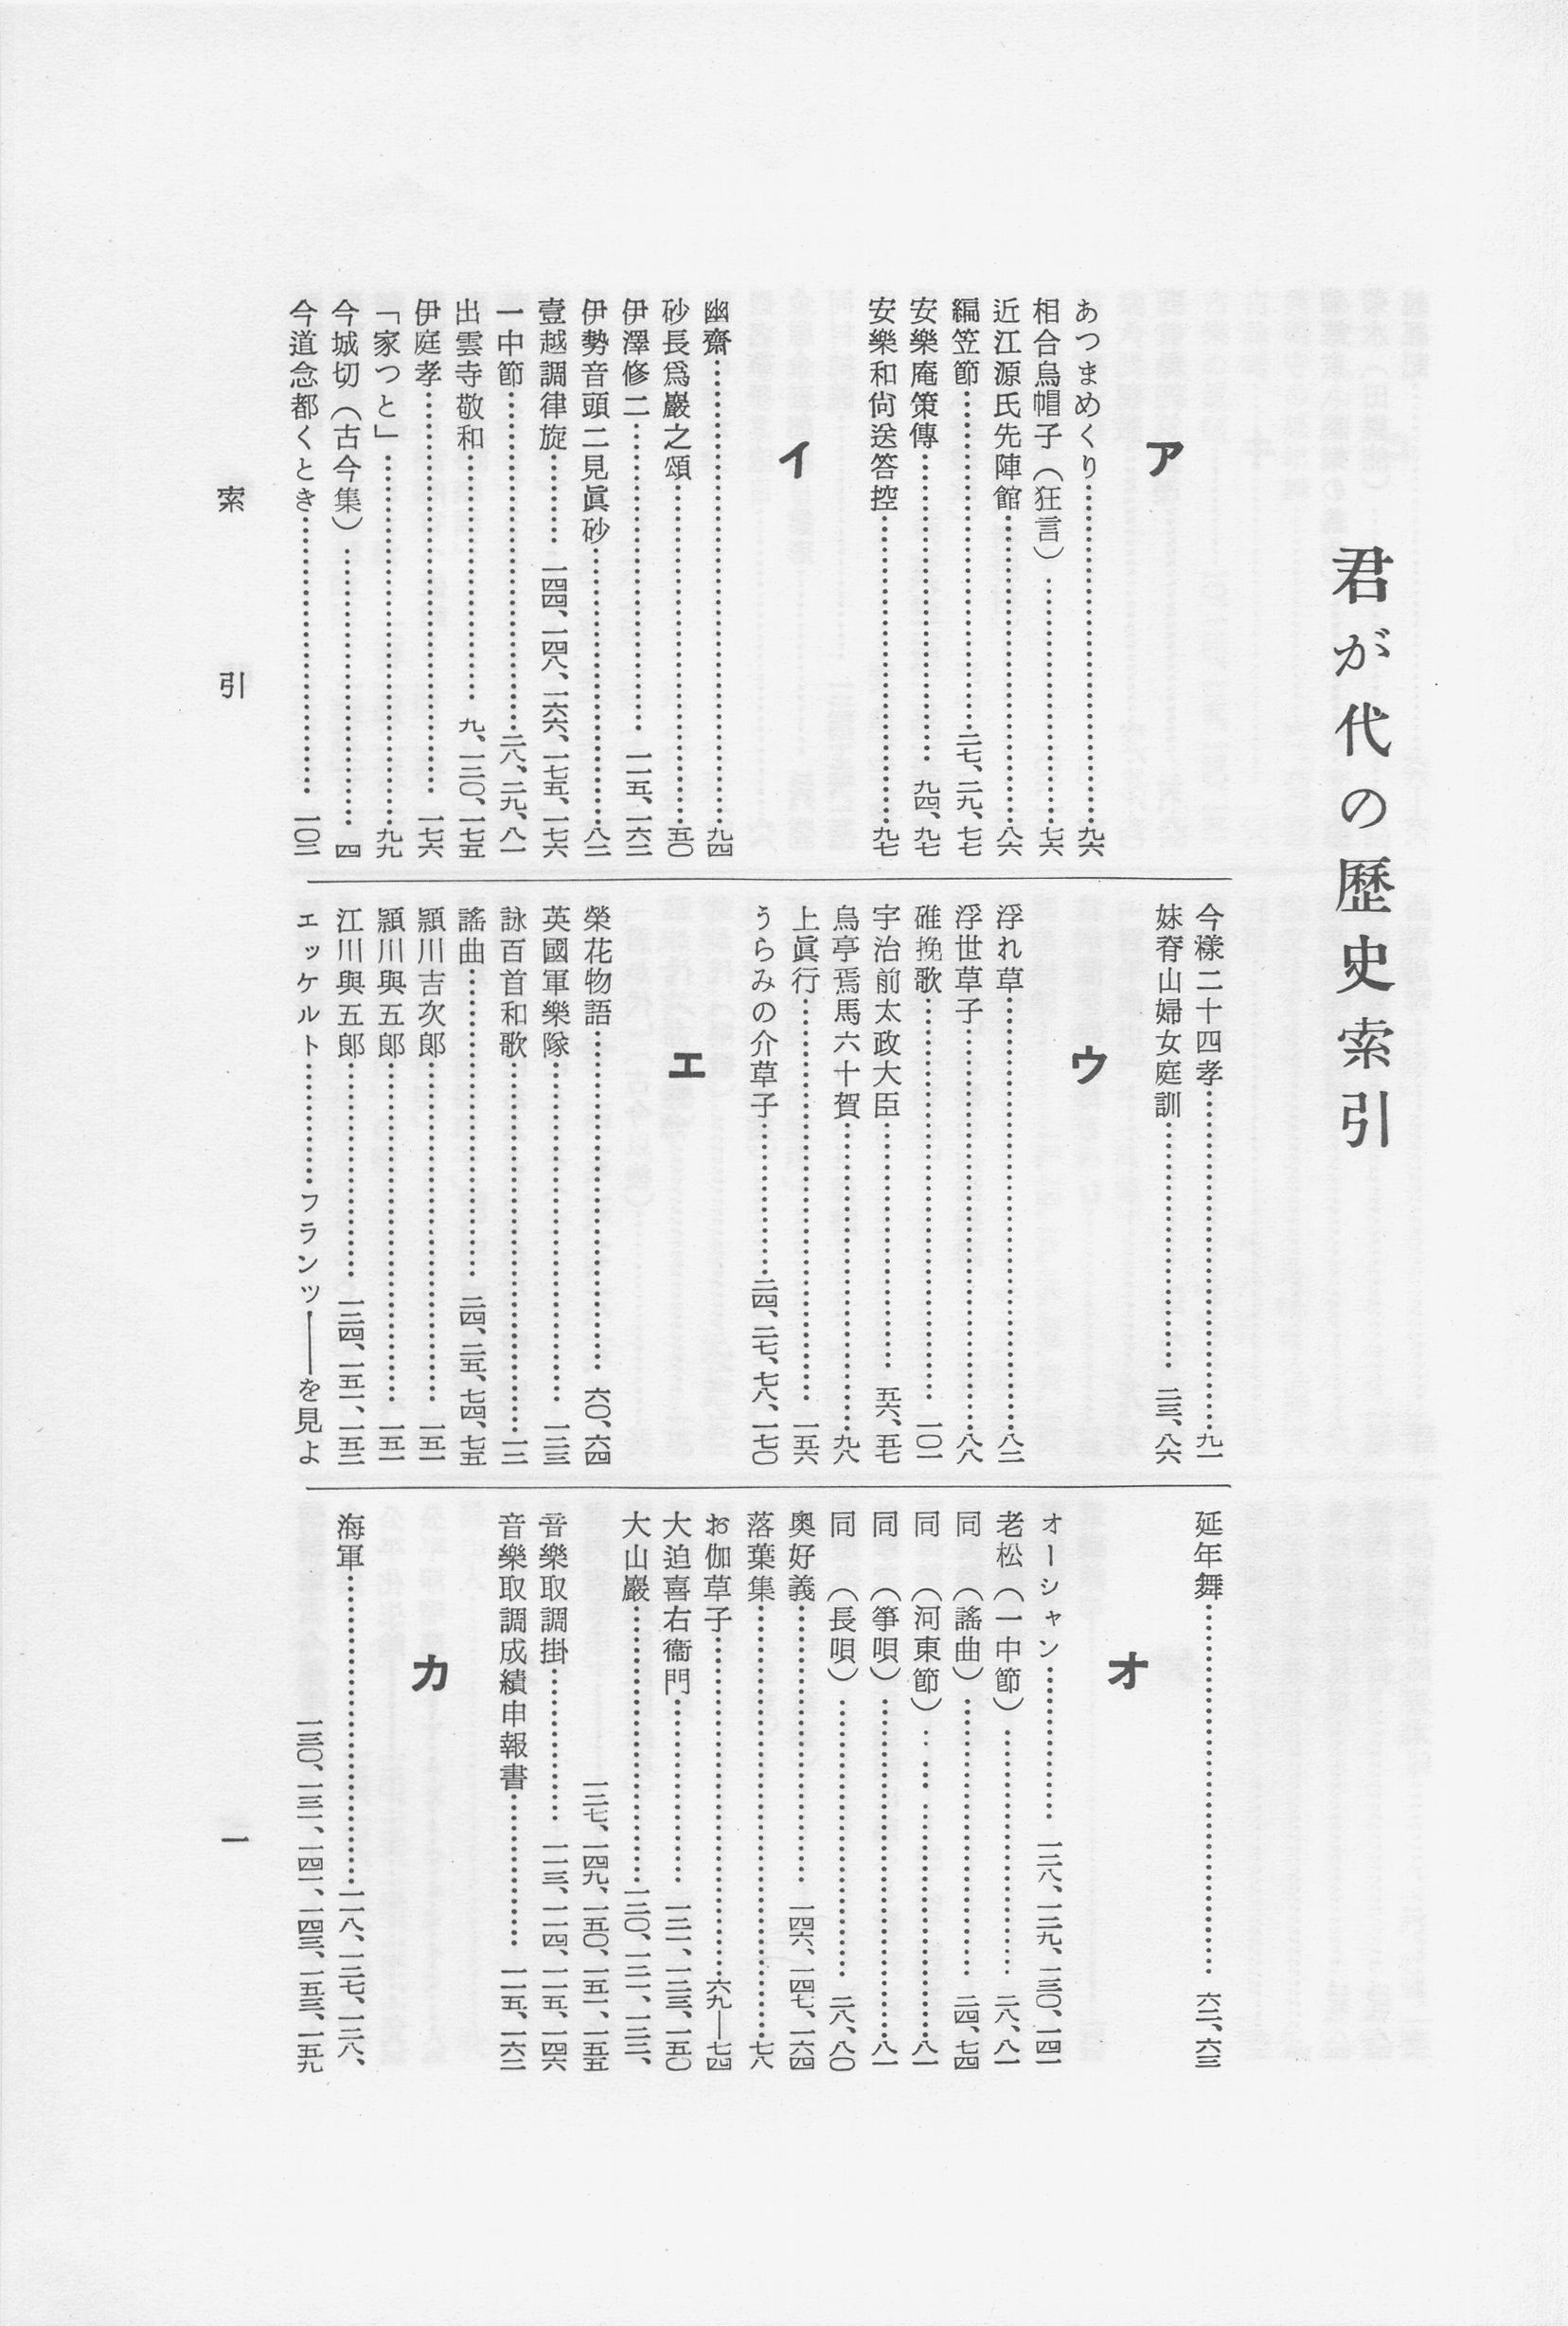 君が代の歴史索引
ア
あつまめくり……九六
相合烏帽子（狂言）……七六
近江源氏先陣館……八六
編笠節……二七、二九、七七
安樂庵策傳……九四、九七
安樂和尙送答控……九七
イ
幽齋……九四
砂長爲巖之頌……五〇
伊澤修二……一一五、一六二
伊勢音頭二見眞砂……八二
壹越調律旋……一四四、一四八、一六六、一七五、一七六
一中節……二八、二九、八一
出雲寺敬和……九、一三〇、一七五
伊庭孝……一七六
「家つと」……九九
今城切（古今集）……四
今道念都くとき……一〇二
今樣二十四孝……九一
妹脊山婦女庭訓……二三、八六
ウ
浮れ草……八二
浮世草子……八八
碓挽歌……一〇一
宇治前太政大臣……五六、五七
烏亭焉馬六十賀……九八
上眞行……一五六
うらみの介草子……二四、二七、七八、一七〇
エ
榮花物語……六〇、六四
英國軍樂隊……一二三
詠百首和歌……一二
謠曲……二四、二五、七四、七五
頴川吉次郎……一五一
頴川與五郎……一五一
江川與五郎……一三四、一五一、一五二
エッケルト……フランツ――を見よ
延年舞……六二、六三
オ
オーシャン……一二八、一二九、一三〇、一四一
老松（一中節）……二八、八一
同　（謠曲）……二四、七四
同　（河東節）……八一
同　（箏唄）……八一
同　（長唄）……二八、八〇
奧好義……一四六、一四七、一六四
落葉集……七八
お伽草子……六九―七四
大迫喜右衞門……一二一、一二三、一五〇
大山巖……一二〇、一二一、一二二、
一二七、一四九、一五〇、一五一、一五五
音樂取調掛……一一三、一一四、一一五、一四六
音樂取調成績申報書……一一五、一六二
カ
海軍……一一八、一二七、一二八、
一三〇、一三一、一四一、一四三、一五三、一五九
索引
一